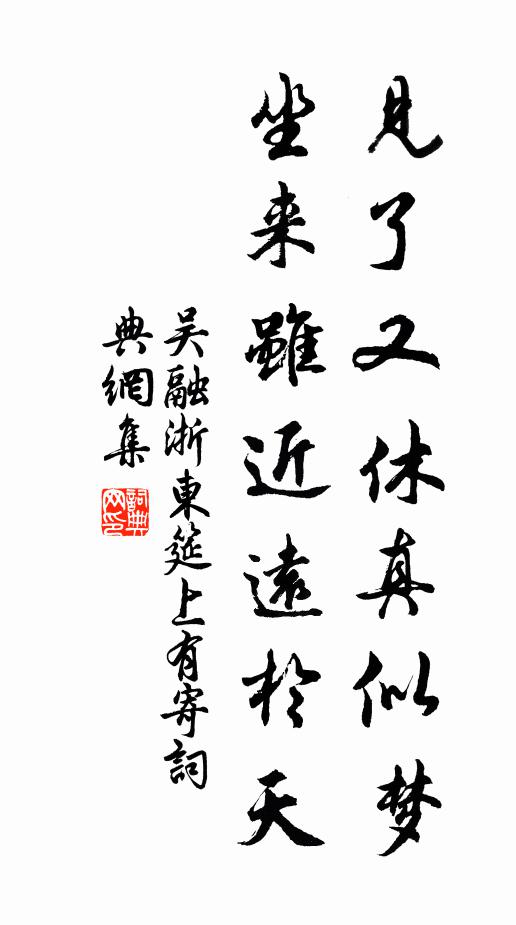 見了又休真似梦
坐来雖近遠於天
吴融浙東筵上有寄詞
典網集
詞典網印